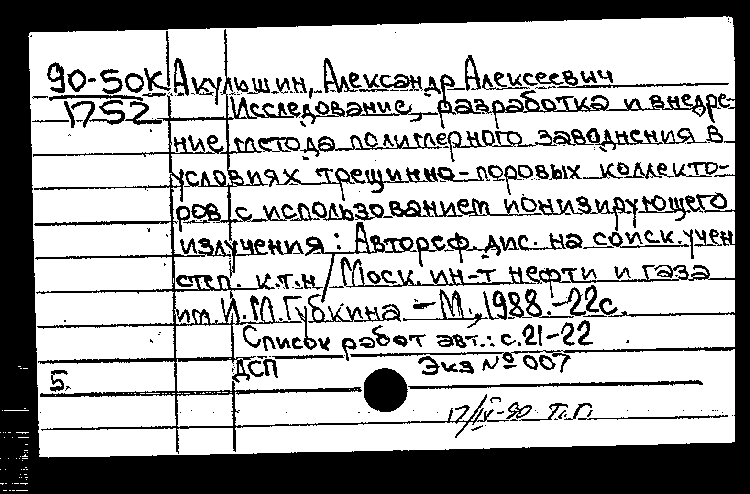 90-50К Акульшин, Александр Алексеевич
1752 Исследование, разработка и внедре-
ние метода полимерного заводнения в
условиях трещинно-поровых коллекто-
ров с использованием ионизирующего
излучения: Автореф. дис. на соиск. учен
степ. к.т.н / Моск. ин-т нефти и газа
им. И.М. Губкина. - М., 1988. - 22с.
Список работ авт.: с. 21-22
5. ДСП Экз № 007
17/IV-90 Т.П.